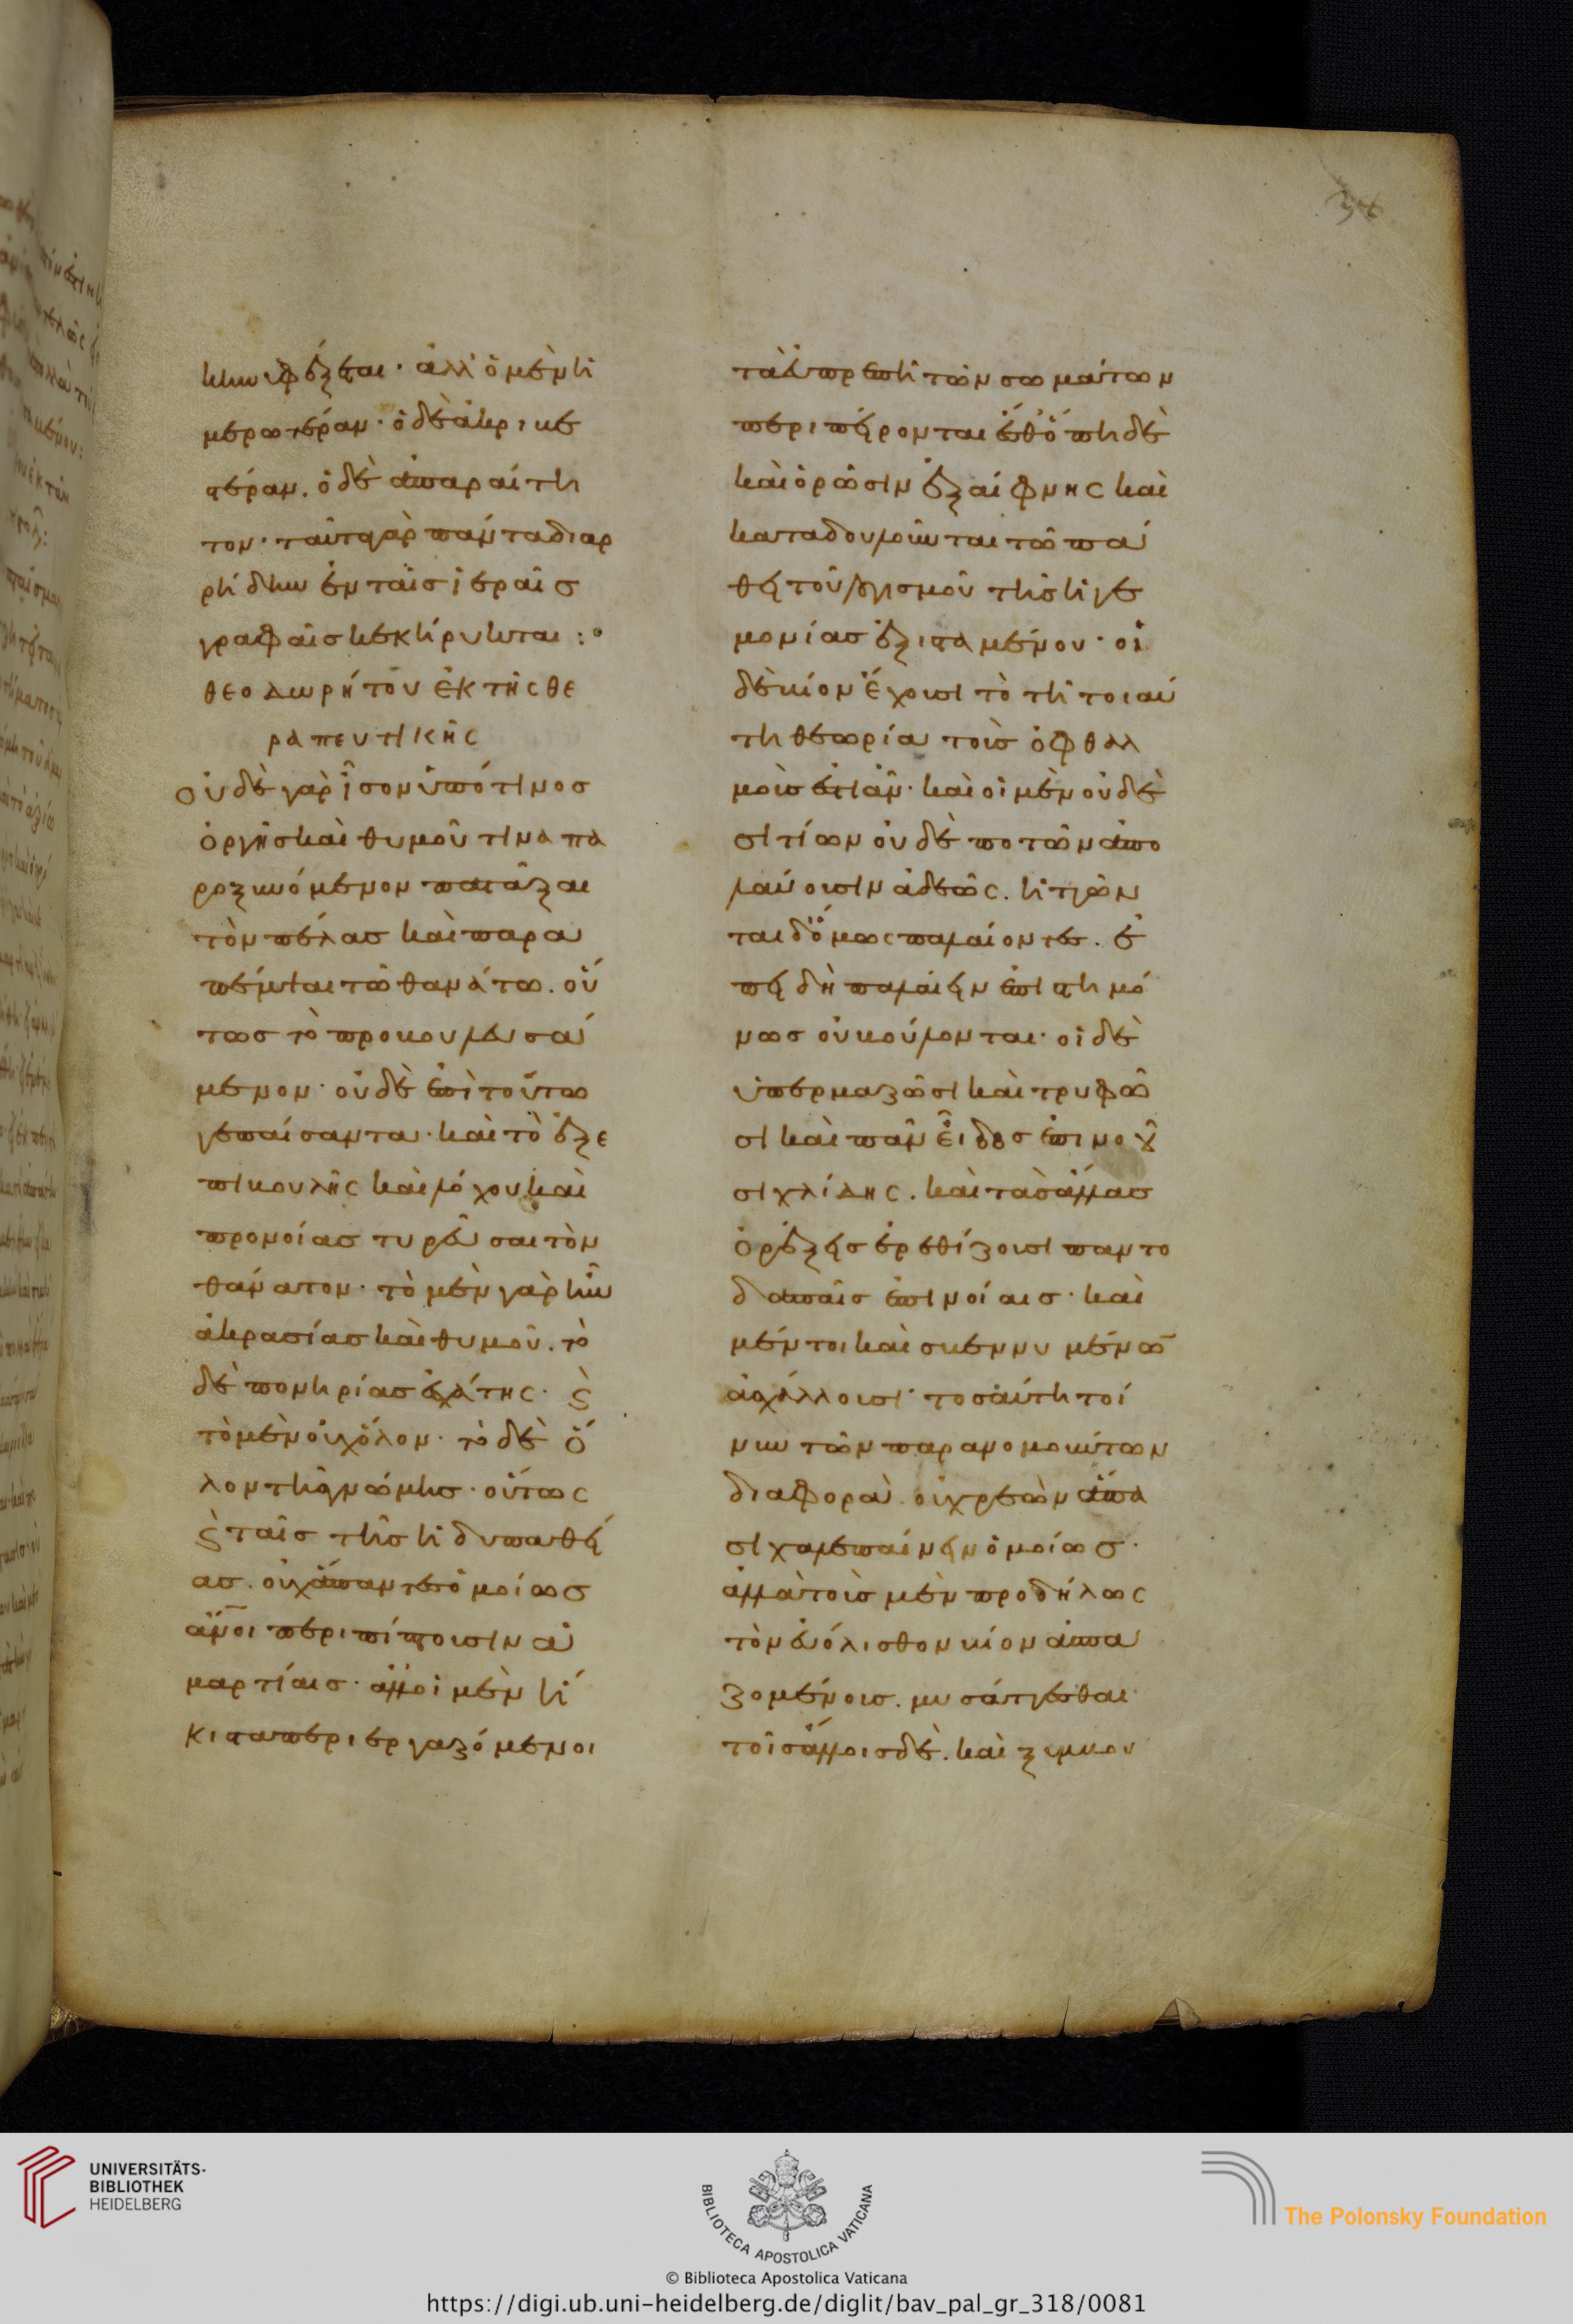 κὴν ὑφέξεται· ἀλλ' ὁ μὲν ἡ
μερωτέραν· ὁ δὲ ἀκριβε
στέραν. ὁ δὲ ἀπαραίτη
τον· ταῦτα γὰρ πάντα διαρ
ρήδην ἐν ταῖς ἱεραῖς
γραφαῖς κεκήρυκται :
θεοδωρήτου ἐκ τῆς θε
ραπευτικῆς
οὐδὲ γὰρ ἶσον ὑπό τινος
ὀργῆς καὶ θυμοῦ τινα πα
ροξυνόμενον πατάξαι
τὸν πέλας καὶ παρα
πέμψαι τῶ θανάτω. οὔ
τως τὸ προβουλευσά
μενον· οὐδὲ ἐπὶ τούτω
γε παίσαντα· καὶ τὸ ἐξ ε
πιβουλῆς καὶ λόχου καὶ
προνοίας τυρεῦσαι τὸν
θάνατον· τὸ μὲν γὰρ ἦν
ἀκρασίας καὶ θυμοῦ. τὸ
δὲ πονηρίας ἐσχάτης· ϗ
τὸ μὲν οὐχ ὅλον· τὸ δὲ ὅ
λον τῆς γνώμης· οὕτως
ϗ ταῖς τῆς ἡδυπαθεί
ας. οὐχ ἅπαντες ὁμοίως
ἄνοι περιπίπτουσιν ἁ
μαρτίαις· ἀλλ' οἱ μὲν ἥ
κιστα περιεργαζόμενοι
τὰ εὐπρεπῆ τῶν σωμάτων
περιπείρονται ἔσθ' ὅπη δὲ
καὶ ὁρῶσιν ἐξαίφνης καὶ
καταδουλοῦνται τῶ πά
θει τοῦ λογισμοῦ τῆς ἡγε
μονίας ἐξισταμένου· οἱ
δὲ βίον ἔχουσι τὸ τῆ τοιαύ
τη θεωρία τοὺς ὀφθαλ
μοὺς ἑστιᾶν· καὶ οἱ μὲν οὐδὲ
σιτίων οὐδὲ ποτῶν ἀπο
λαύουσιν ἀδεῶς. ἡττῶν
ται δ' ὅμως παλαίοντες. ἐ
πειδὴ παλαίειν ἐπιστημό
νως οὐ βούλονται· οἱ δὲ
ὑπερμαζῶσι καὶ τρυφῶ
σι καὶ πᾶν εἶδος ἐπινοοῦ
σι χλίδης. καὶ τὰς ἄλλας
ὀρέξεις ἐρεθίζουσι παντο
δαπαῖς ἐπινοίαις· καὶ
μέντοι καὶ σβεννυμένων
ἀσχάλλουσι· τοσαύτη τοί
νυν τῶν παρανομούντων
διαφορά. οὐ χρεὼν ἅπα
σι χαλεπαίνειν ὁμοίως·
ἀλλὰ τοὺς μὲν προδήλως
τὸν εὐόλισθον βίον ἀσπα
ζομένους. μυσάττεσθαι·
τοῖς ἄλλοις δὲ. καὶ ξυμβου
UNIVERSITÄTS-
BIBLIOTHEK
HEIDELBERG
BIBLIOTECA APOSTOLICA VATICANA
The Polonsky Foundation
© Biblioteca Apostolica Vaticana
https://digi.ub.uni-heidelberg.de/diglit/bav_pal_gr_318/0081